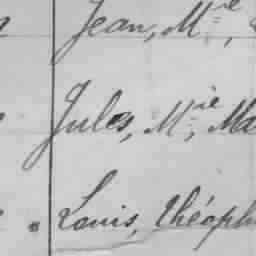 Jean, Mie,
Jules, Mie, Ma
Louis, Théoph